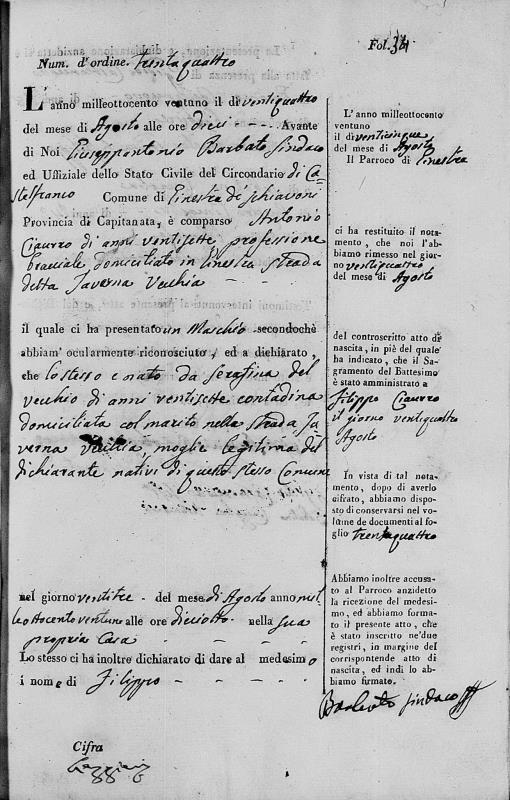 Fol. 34
Num. d'ordine. trentaquattro
L'anno milleottocento ventuno il dì ventiquattro
del mese di Agosto alle ore dieci - - - - Avante
di Noi Giuseppantonio Barbato Sindaco
ed Uffiziale dello Stato Civile del Circondario di Ca=
stelfranco Comune di Ginestra de' schiavoni
Provincia di Capitanata, è comparso Antonio
Ciaurro di anni ventisette professione
bracciale domiciliato in Ginestra Strada
detta Taverna Vecchia - - - -
il quale ci ha presentato un Maschio secondochè
abbiam' ocularmente riconosciuto, ed a dichiarato,
che lo stesso è nato da Serafina del
vecchio di anni ventisette contadina
domiciliata col marito nella Strada Ta
verna Vecchia, moglie legitima del
dichiarante nativi di questo stesso Comune
nel giorno ventitre - del mese di Agosto anno mil
leottocento ventuno alle ore diciotto - nella sua
propria Casa - - - -
Lo stesso ci ha inoltre dichiarato di dare al medesimo
i nome di Filippo - - - -
Cifra
L'anno milleottocento
ventuno
il dì venticinque
del mese di Agosto
Il Parroco di Ginestra
ci ha restituito il nota-
mento, che noi l'ab-
biamo rimesso nel gior-
no ventiquattro
del mese di Agosto
del controscritto atto di
nascita, in piè del quale
ha indicato, che il Sa-
gramento del Battesimo
è stato amministrato a
Filippo Ciaurro
il giorno ventiquattro
Agosto
In vista di tal nota-
mento, dopo di averlo
cifrato, abbiamo dispo-
sto di conservarsi nel vo-
lume de documenti al fo-
glio trentaquattro
Abbiamo inoltre accusa-
to al Parroco anzidetto
la ricezione del medesi-
mo, ed abbiamo forma-
to il presente atto, che
è stato inscritto ne'due
registri, in margine del
corrispondente atto di
nascita, ed indi lo ab-
biamo firmato.
Barbato Sindaco